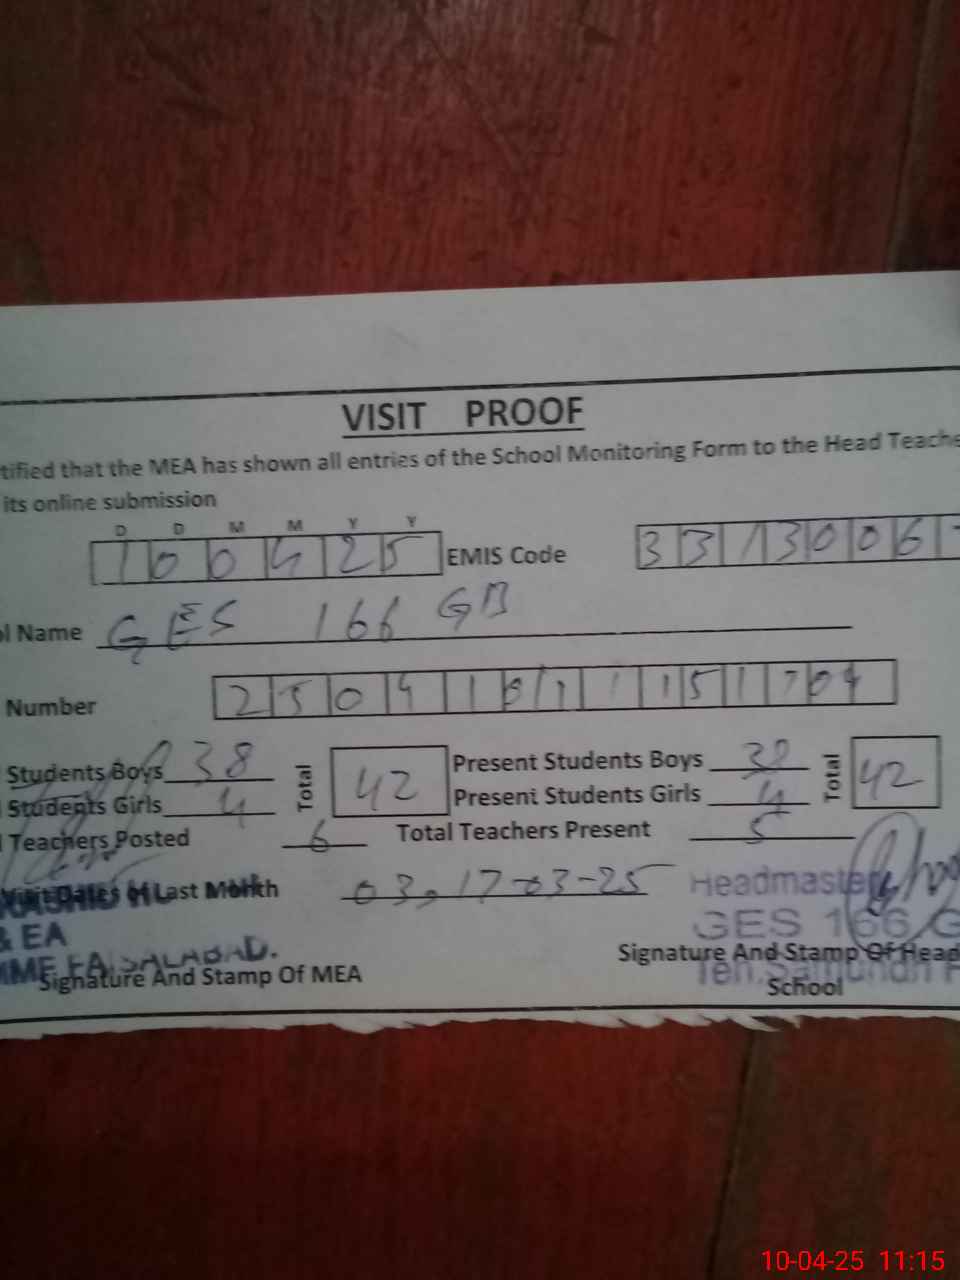 VISIT PROOF
tified that the MEA has shown all entries of the School Monitoring Form to the Head Teache
its online submission
D D M M Y Y
100425 EMIS Code 3313006
ol Name GES 166 GB
Number
Students Boys 38 Total 42 Present Students Boys 38 Total 42
Students Girls 4 Present Students Girls 4
Teachers Posted 6 Total Teachers Present 5
Visit Dates of Last Month 03, 17-03-25
Headmaster
& EA GES 166 G
FAISALABAD.
Signature And Stamp Of MEA Signature And Stamp Of Head
School
10-04-25 11:15